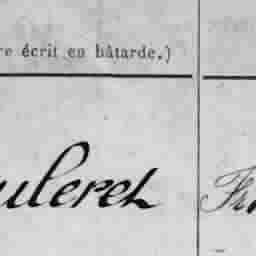 re écrit en bâtarde.)
uleret Fr